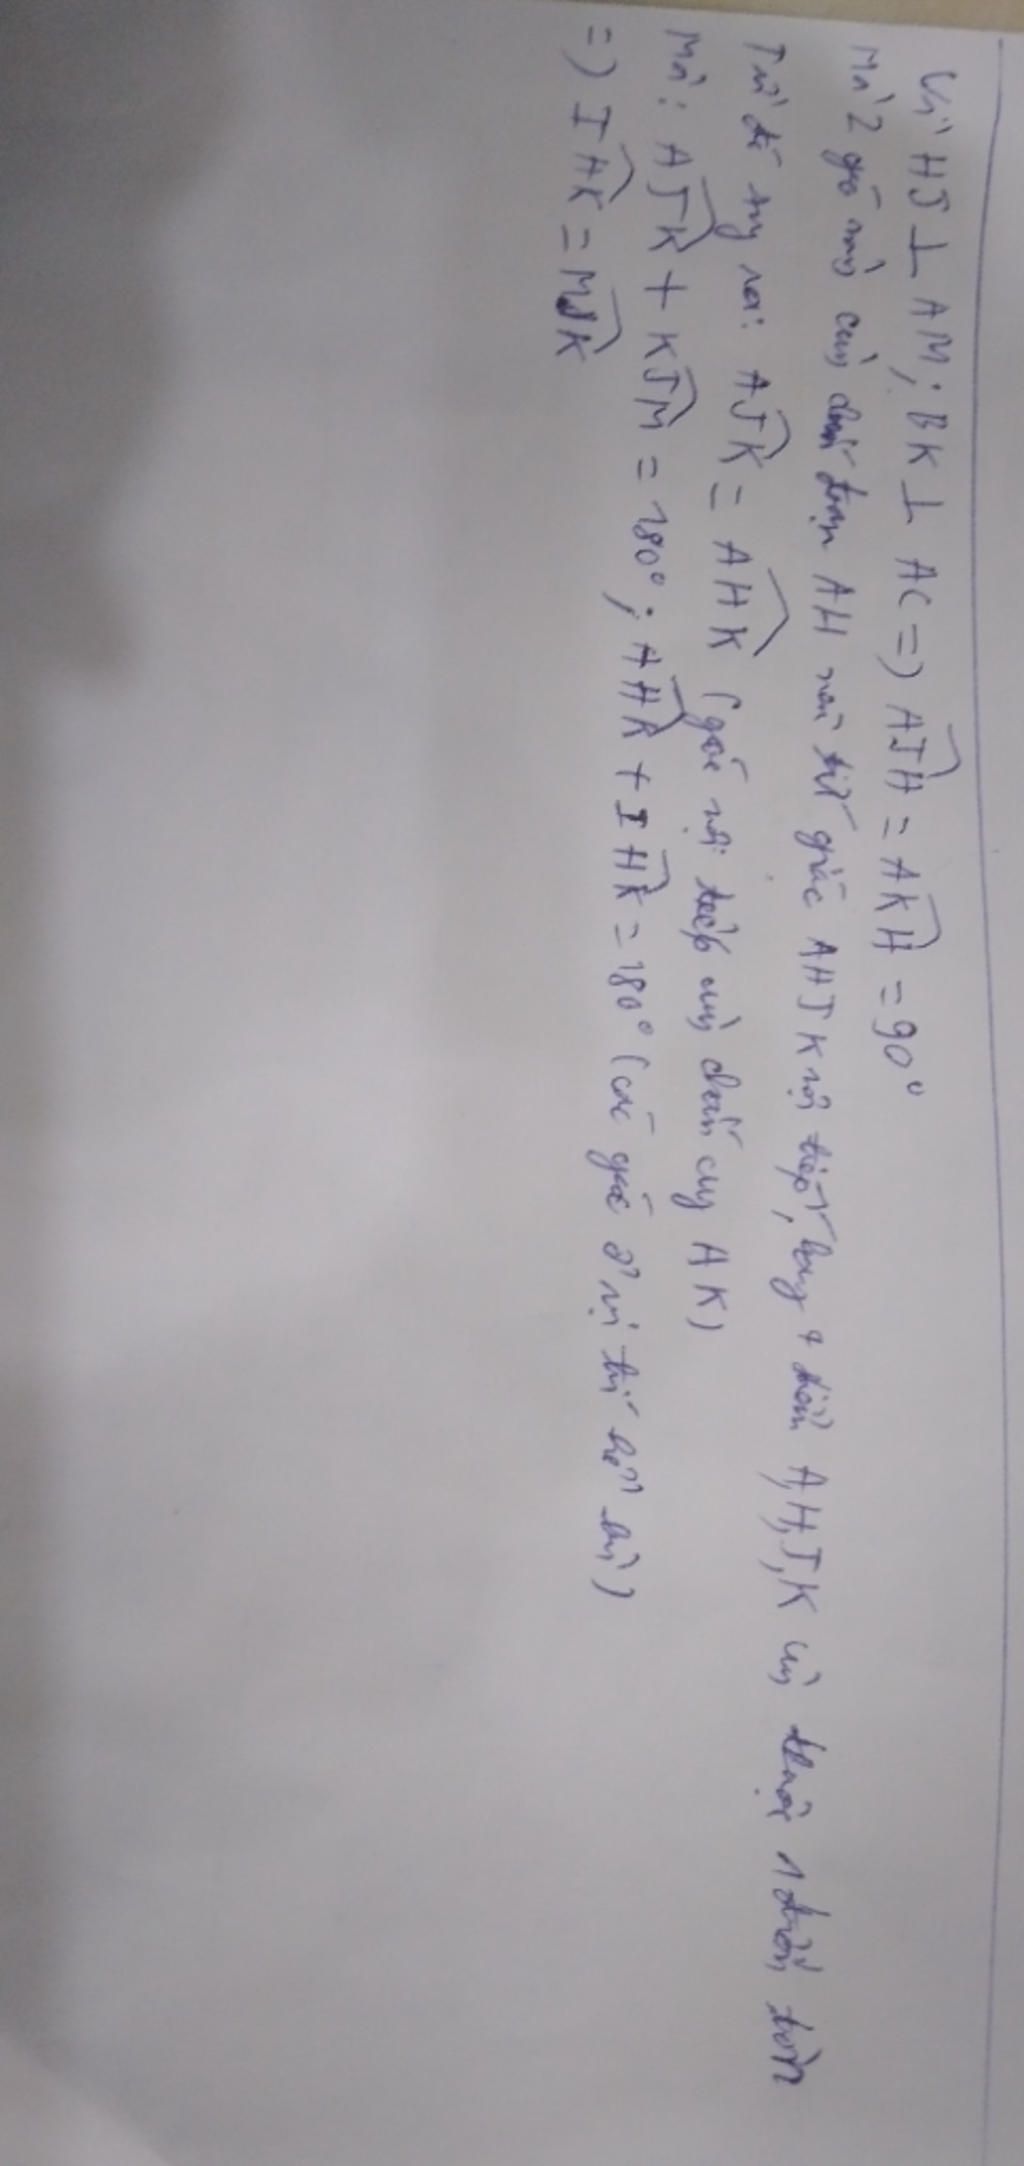 Vì HJ ⊥ AM; BK ⊥ AC => \widehat{AJH} = \widehat{AKH} = 90°
Mà 2 góc này cùng chắn đoạn AH nên tứ giác AHJK nội tiếp, hay 4 điểm A,H,J,K cùng thuộc 1 đường tròn
Từ đó suy ra: \widehat{AJK} = \widehat{AHK} (góc nội tiếp cùng chắn cung AK)
Mà: \widehat{AJK} + \widehat{KJM} = 180°; \widehat{AHK} + \widehat{IHK} = 180° (các góc ở vị trí kề bù)
=> \widehat{IHK} = \widehat{MJK}